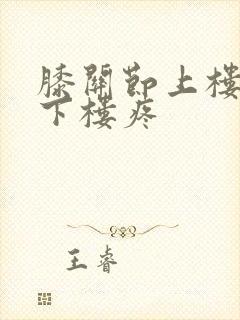 膝關節上樓
下樓疼
王睿